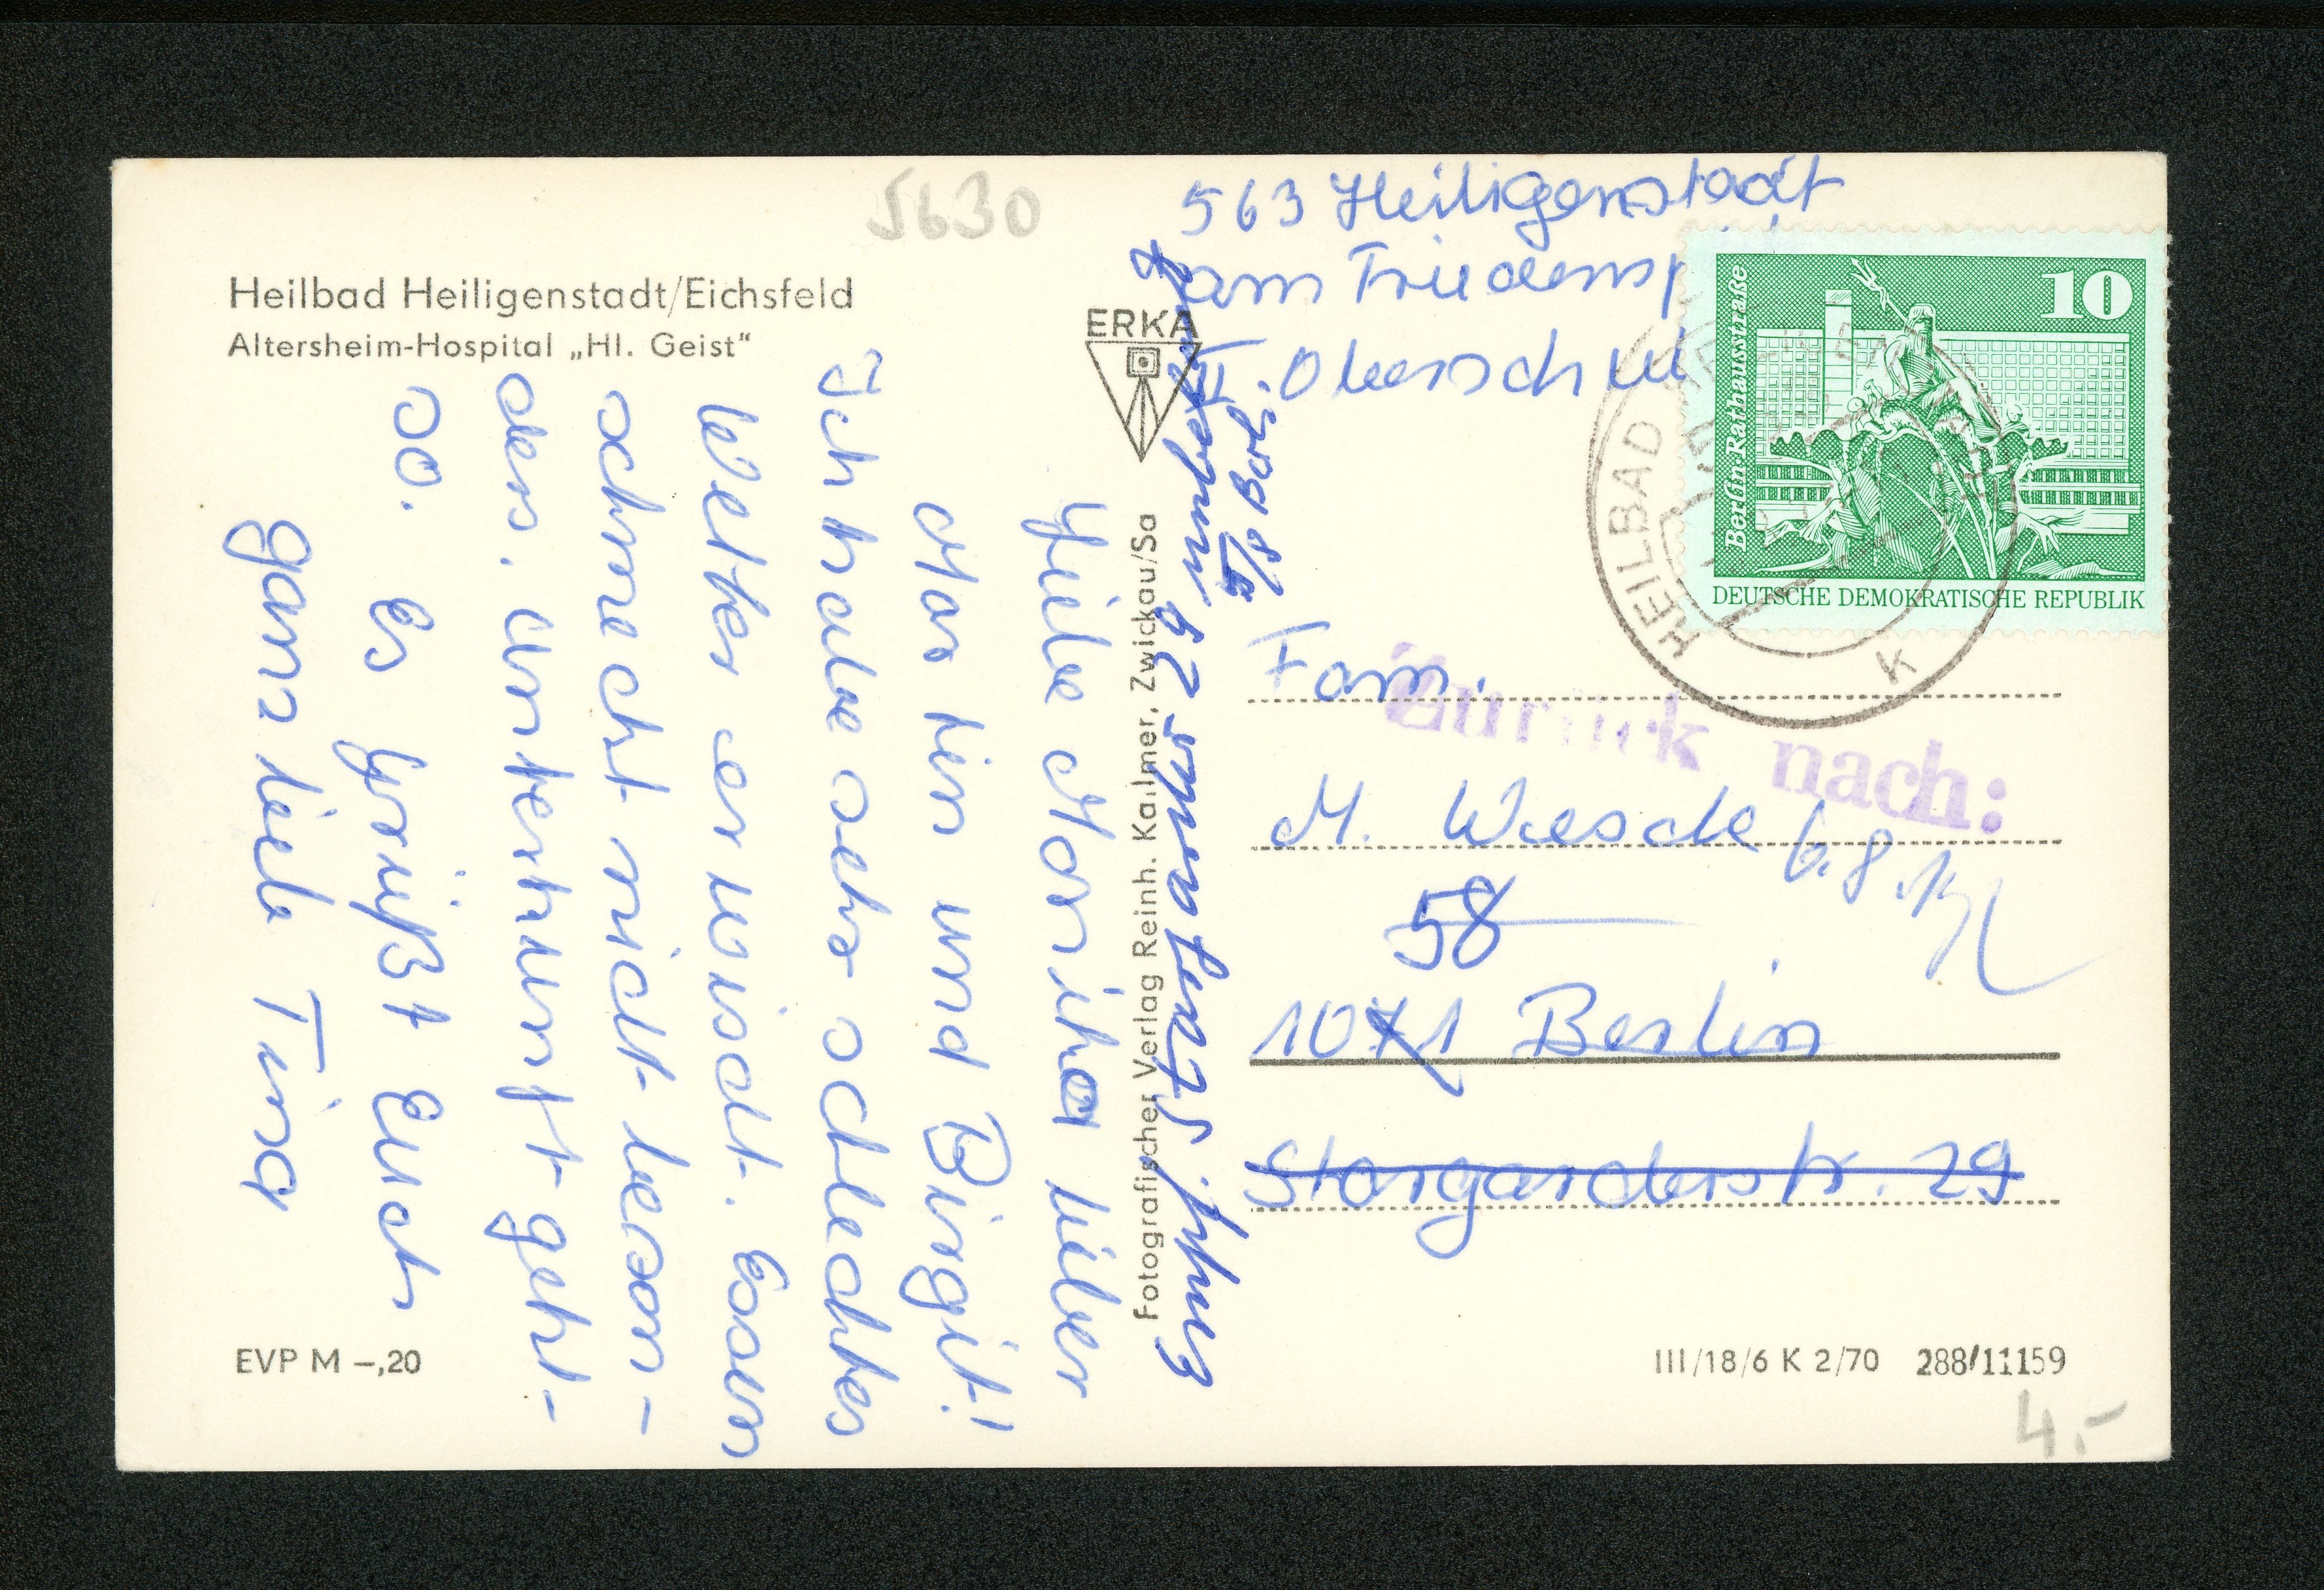 5630
Heilbad Heiligenstadt/Eichsfeld
Altersheim-Hospital „Hl. Geist“
Liebe Monika lieber
Martin und Birgit!
Ich habe sehr schlechtes
Wetter erwischt. Essen
schmeckt nicht beson-
ders. Unterkunft geht
so. Es grüßt Euch
ganz lieb Tina
EVP M –,20
ERKA
Fotografischer Verlag Reinh. Kallmer, Zwickau/Sa
563 Heiligenstadt
am Friedensp
Oberschul
10
Berlin Rathausstraße
DEUTSCHE DEMOKRATISCHE REPUBLIK
HEILBAD
K
Zurück nach:
Fam.
M.
58
1071 Berlin
Stargarderstr. 29
III/18/6 K 2/70 288/11159
4.-